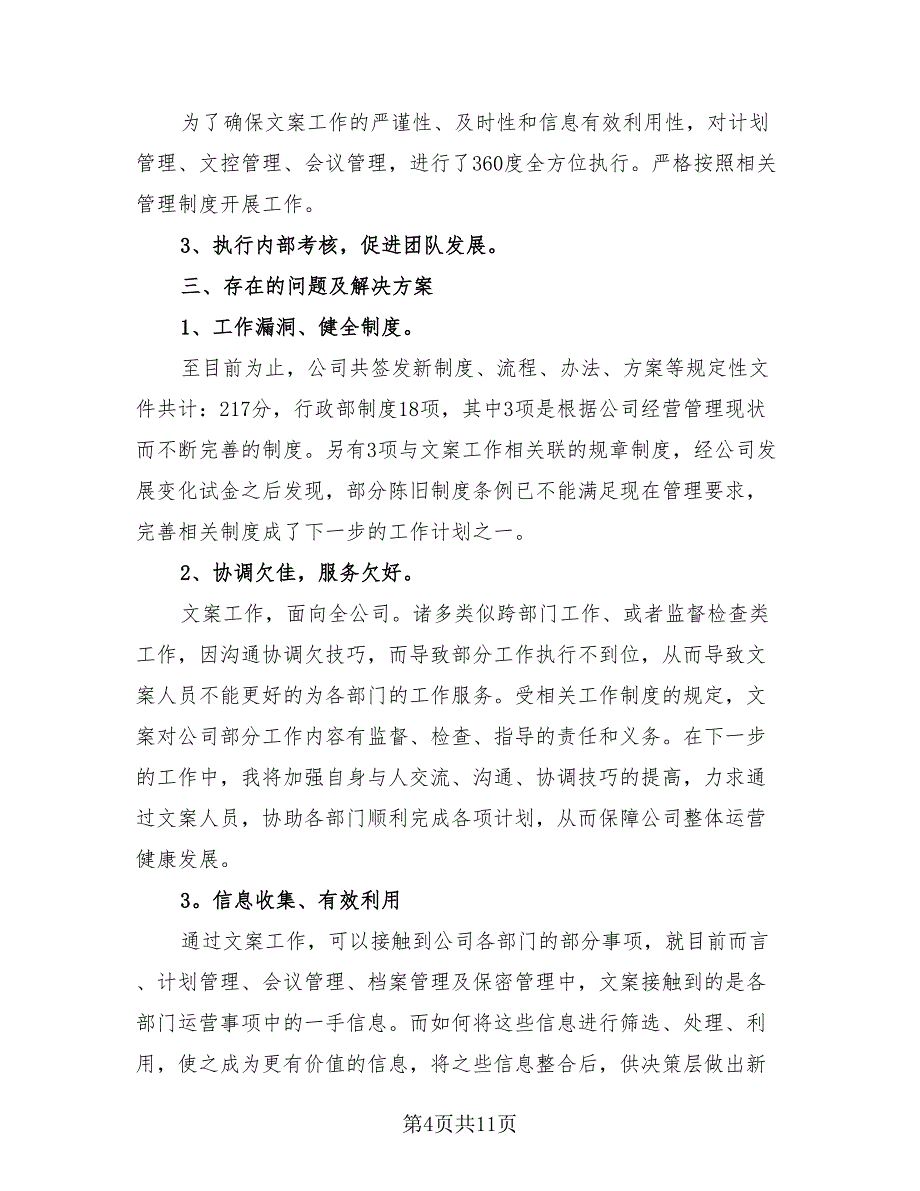 为了确保文案工作的严谨性、及时性和信息有效利用性，对计划
管理、文控管理、会议管理，进行了360度全方位执行。严格按照相关
管理制度开展工作。
3、执行内部考核，促进团队发展。
三、存在的问题及解决方案
1、工作漏洞、健全制度。
至目前为止，公司共签发新制度、流程、办法、方案等规定性文
件共计：217分，行政部制度18项，其中3项是根据公司经营管理现状
而不断完善的制度。另有3项与文案工作相关联的规章制度，经公司发
展变化试金之后发现，部分陈旧制度条例已不能满足现在管理要求，
完善相关制度成了下一步的工作计划之一。
2、协调欠佳，服务欠好。
文案工作，面向全公司。诸多类似跨部门工作、或者监督检查类
工作，因沟通协调欠技巧，而导致部分工作执行不到位，从而导致文
案人员不能更好的为各部门的工作服务。受相关工作制度的规定，文
案对公司部分工作内容有监督、检查、指导的责任和义务。在下一步
的工作中，我将加强自身与人交流、沟通、协调技巧的提高，力求通
过文案人员，协助各部门顺利完成各项计划，从而保障公司整体运营
健康发展。
3。信息收集、有效利用
通过文案工作，可以接触到公司各部门的部分事项，就目前而言
、计划管理、会议管理、档案管理及保密管理中，文案接触到的是各
部门运营事项中的一手信息。而如何将这些信息进行筛选、处理、利
用，使之成为更有价值的信息，将之些信息整合后，供决策层做出新
第4页共11页